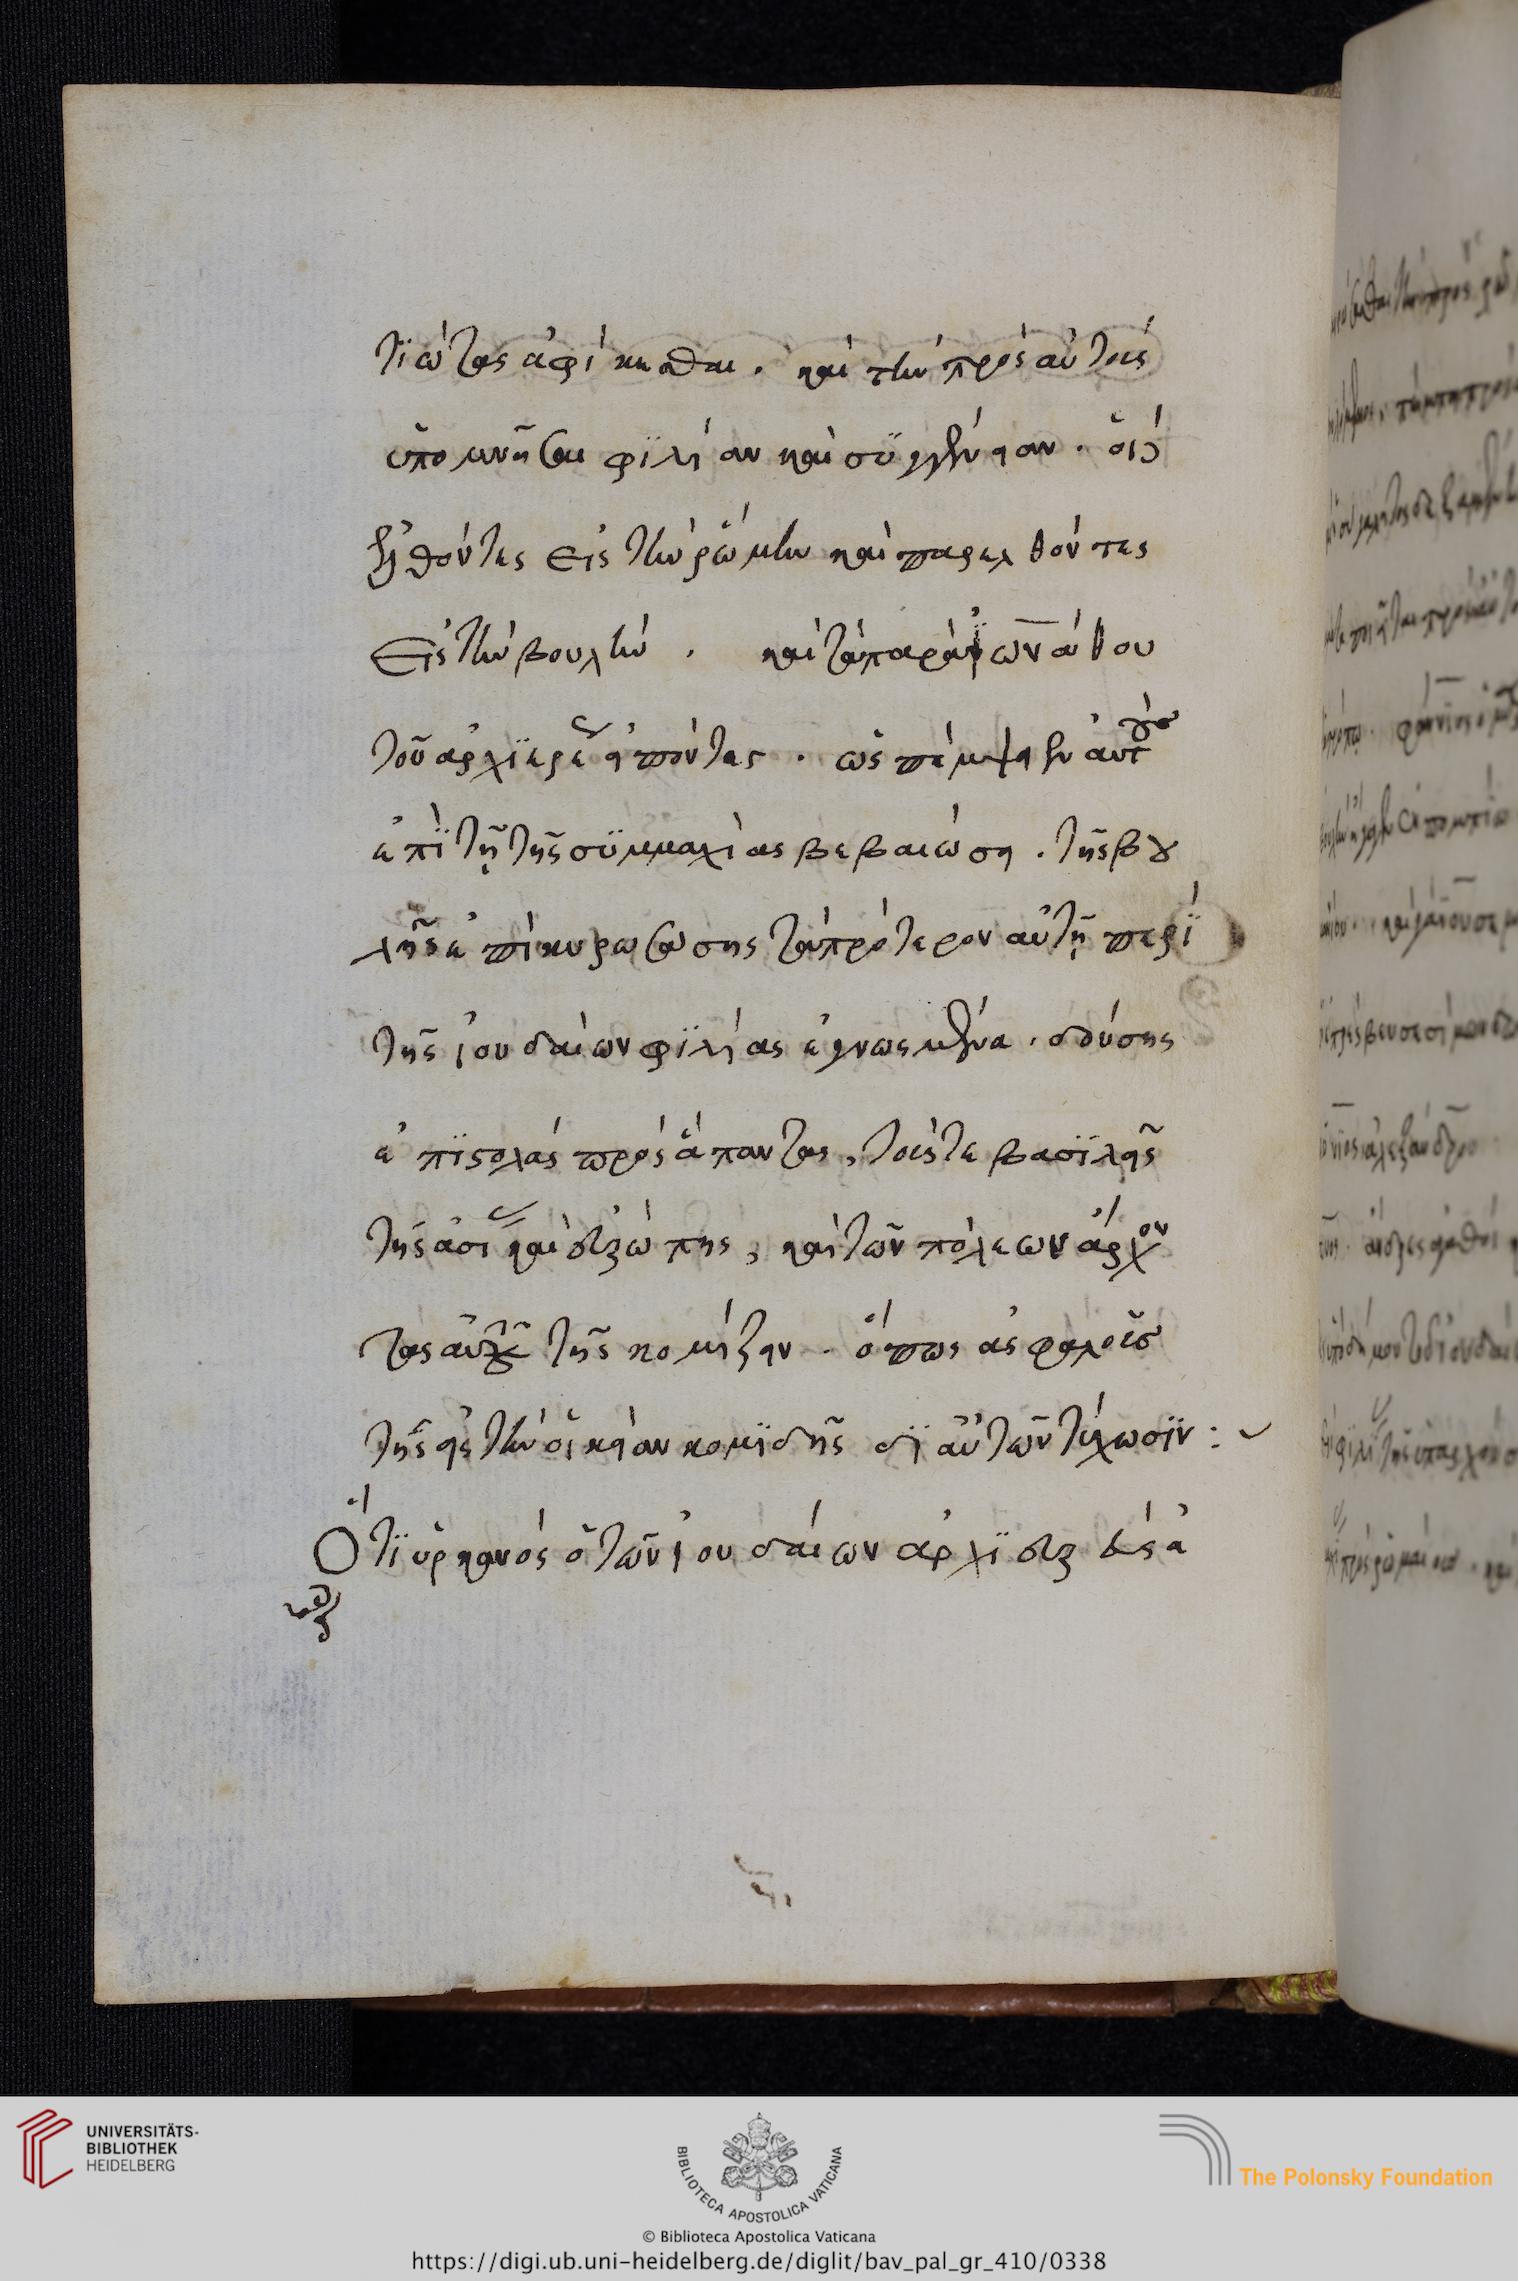 τϊώτας ἀφίκησθαι. καὶ τὴν πρὸς αὐτοὺς
ὑπομνῆσαι φϊλίαν καὶ σϋγγένειαν. οἳ
ἐλθόντες εἰς τὴν ῥώμην καὶ παρελθόντες
εἰς τὴν βουλὴν. καὶ τὰ παρὰ ἰωνάθου
τοῦ ἀρχϊερέως εἰπόντες. ὡς πέμψειεν αὐτοὺς
ἐπὶ τῇ τῆς σϋμμαχίας βεβαιώσει. τῆς βου
λῆς ἐπικυρωσάσης τὰ πρότερον αὐτῇ περὶ
τῆς ἰουδαίων φϊλίας ἐγνωσμένα. δούσης
ἐπϊστολὰς πρὸς ἅπαντας, τούς τε βασϊλεῖς
τῆς ἀσίας καὶ εὐρώπης, καὶ τῶν πόλεων ἄρχον
τας αὐτοῖς κομίζειν. ὅπως ἀσφαλοῦς
τῆς εἰς τὴν οἰκείαν κομϊδῆς δϊ αὐτῶν τύχωσϊν :
Ὅτϊ ὑρκανὸς ὁ τῶν ἰουδαίων ἀρχϊερεὺς ἀ
UNIVERSITÄTS-
BIBLIOTHEK
HEIDELBERG
BIBLIOTECA APOSTOLICA VATICANA
The Polonsky Foundation
© Biblioteca Apostolica Vaticana
https://digi.ub.uni-heidelberg.de/diglit/bav_pal_gr_410/0338